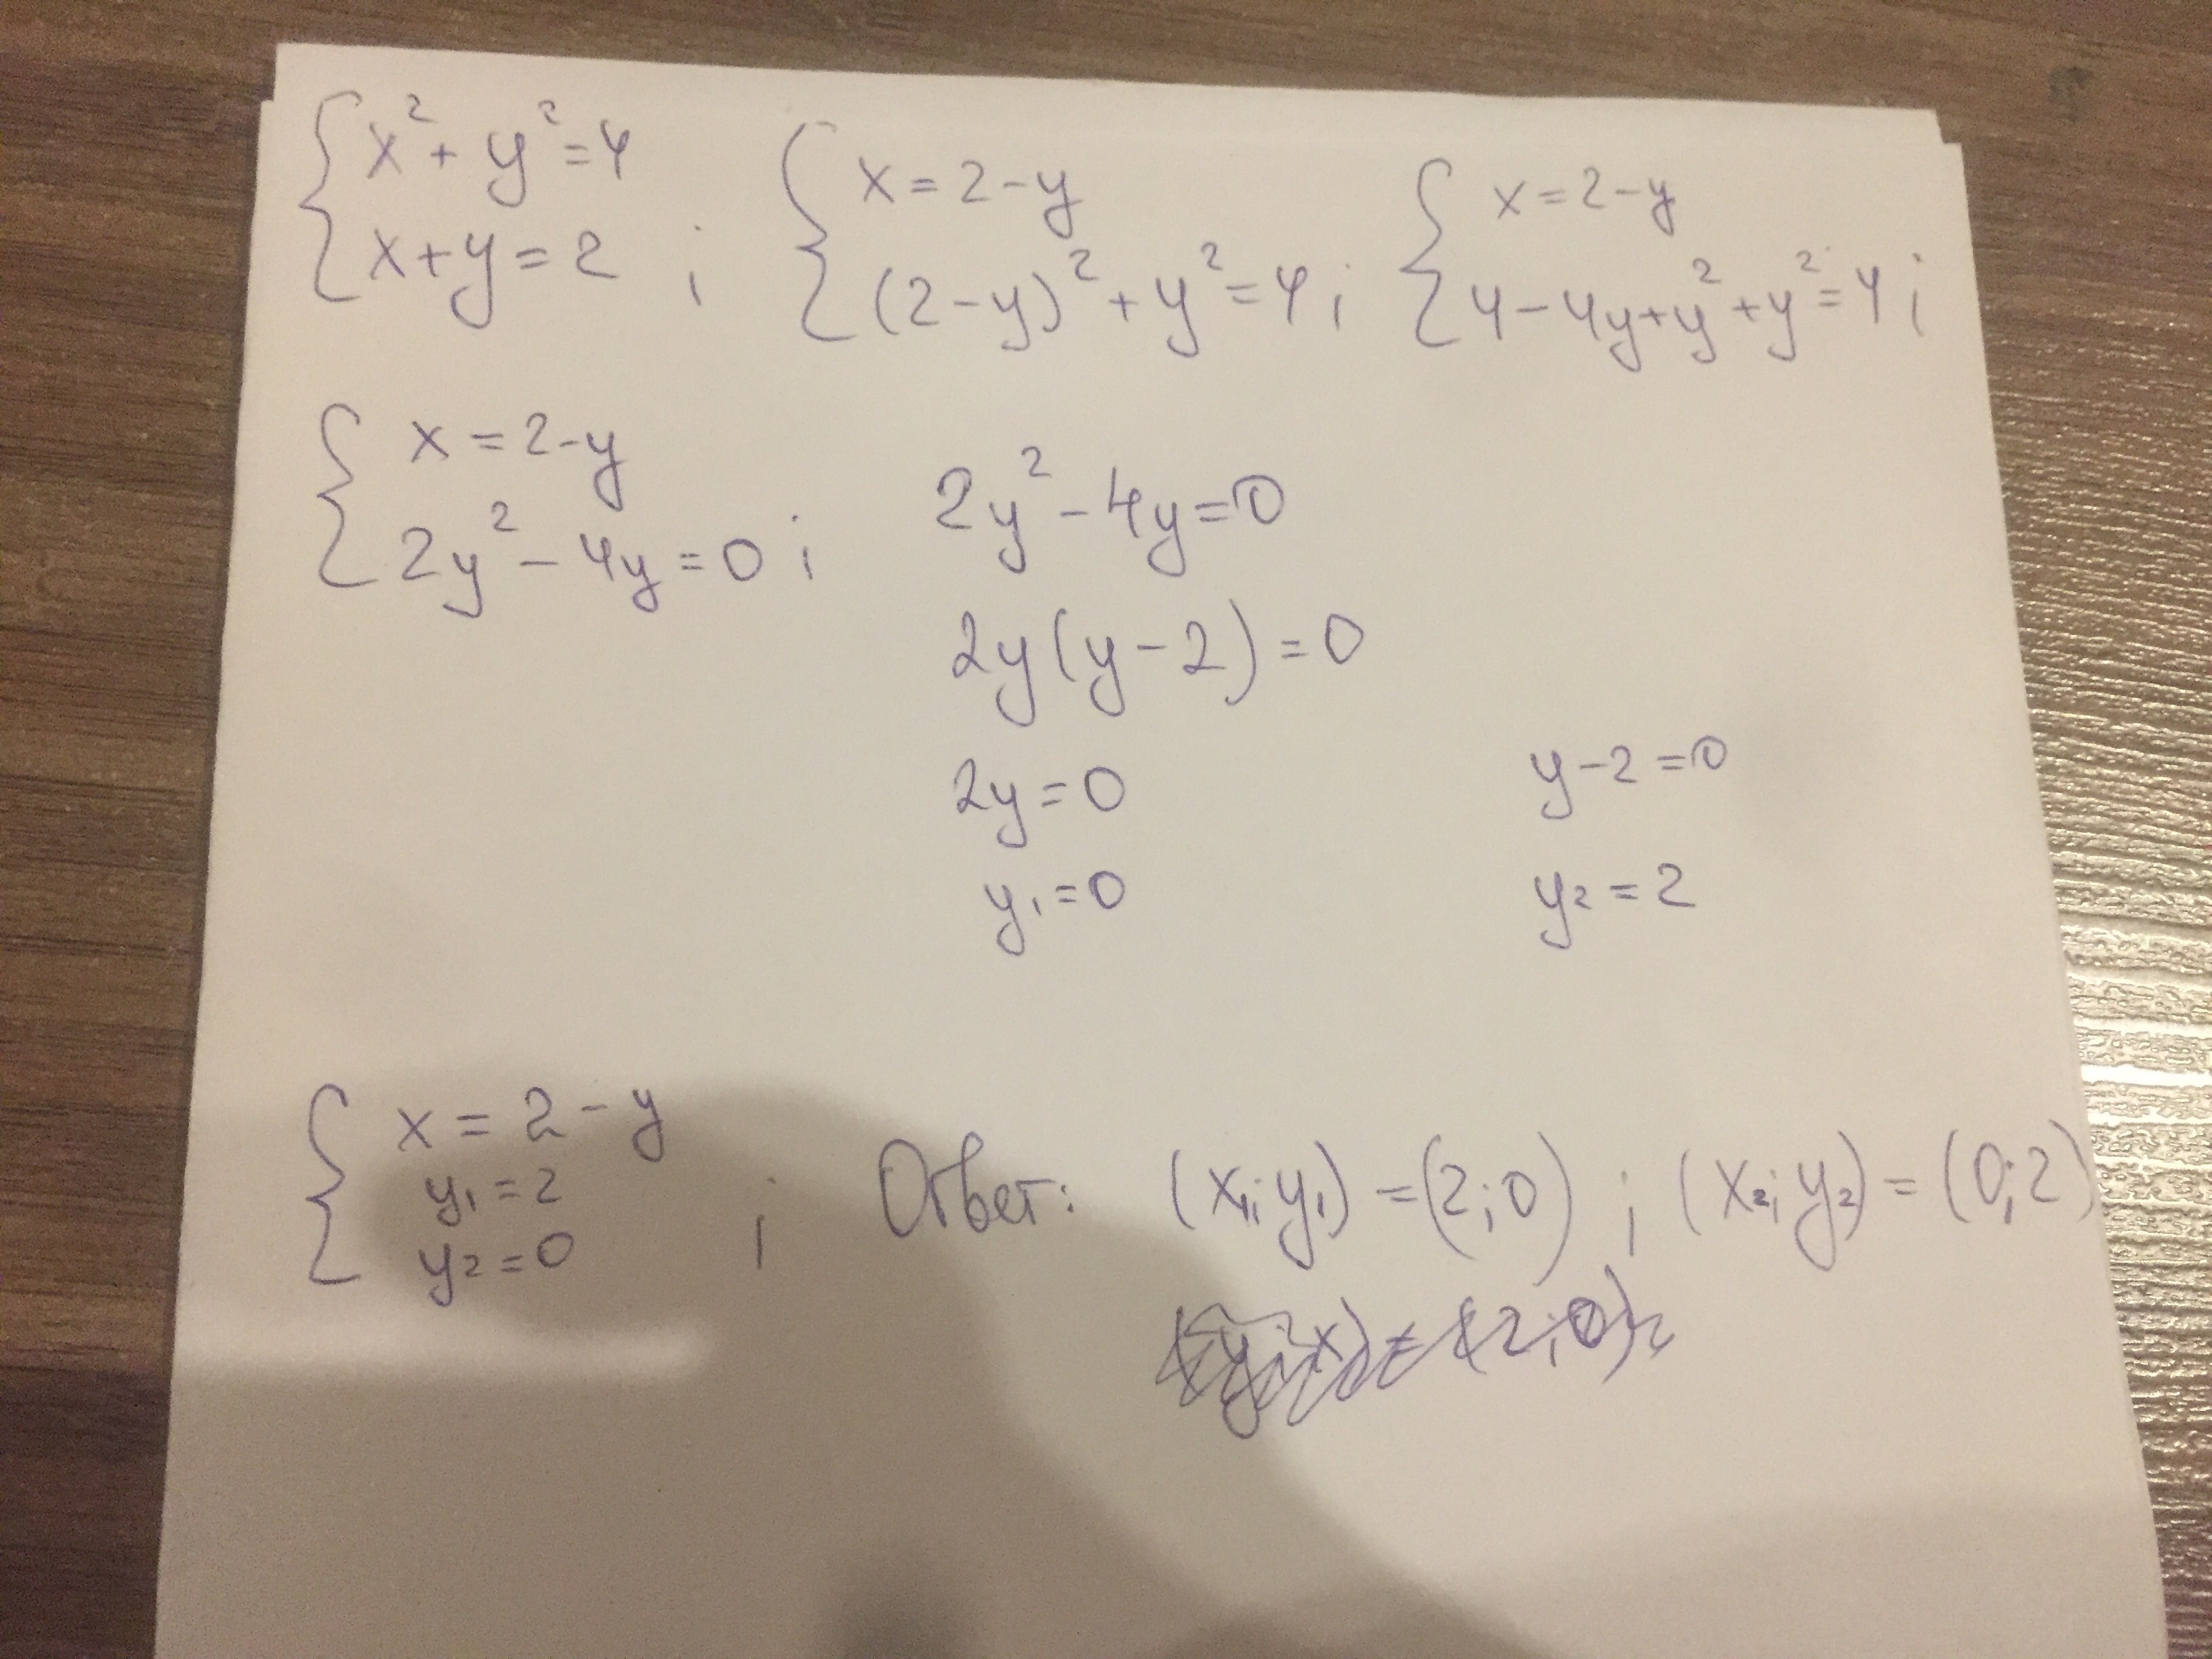 { x² + y² = 4
x + y = 2 ;
{ x = 2 - y
(2 - y)² + y² = 4 ;
{ x = 2 - y
4 - 4y + y² + y² = 4 ;
{ x = 2 - y
2y² - 4y = 0 ;
2y² - 4y = 0
2y(y - 2) = 0
2y = 0
y - 2 = 0
y₁ = 0
y₂ = 2
{ x = 2 - y
y₁ = 2
y₂ = 0 ;
Ответ: (x₁; y₁) = (2; 0) ; (x₂; y₂) = (0; 2)